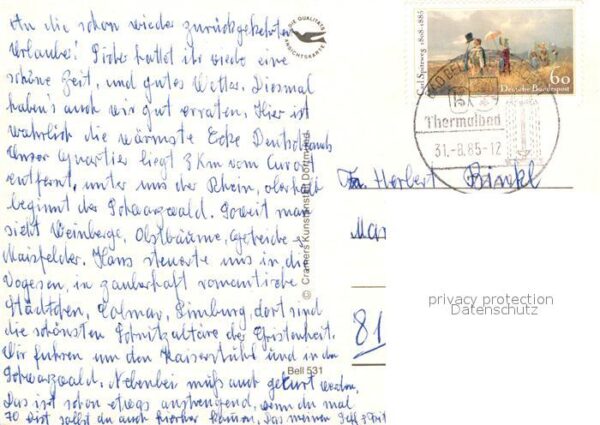 An die schon wieder zurückgekehrten
Urlauber! Sicher hattet ihr viele eine
schöne Zeit, und gutes Wetter. Diesmal
haben's auch wir gut erraten. Hier ist
wahrlich die wärmste Ecke Deutschlands
Unser Quartier liegt 3 Km vom Curort
entfernt, unter uns der Rhein, oberhalb
beginnt der Schwarzwald. Soweit man
sieht Weinberge, Obstbäume, Getreide u.
Maisfelder. Hans steuerte uns in die
Vogesen, in zauberhaft romantische
Städtchen, Colmar, Limburg, dort sind
die schönsten Schnitzaltäre der Cristenheit.
Wir fuhren um den Kaiserstuhl und in den
Schwarzwald. Nebenbei muß auch gekurt werden.
Das ist schon etwas anstrengend, wenn du mal
70 bist sollst du auch hierher
DIE QUALITÄTS
ANSICHTSKARTE
© Cramers Kunstanstalt Dortmund
Bell 531
Carl Spitzweg 1808-1885
60
Deutsche Bundespost
Thermalbad
31.-8.85-12
Fa. Herbert Binkl
81
privacy protection
Datenschutz